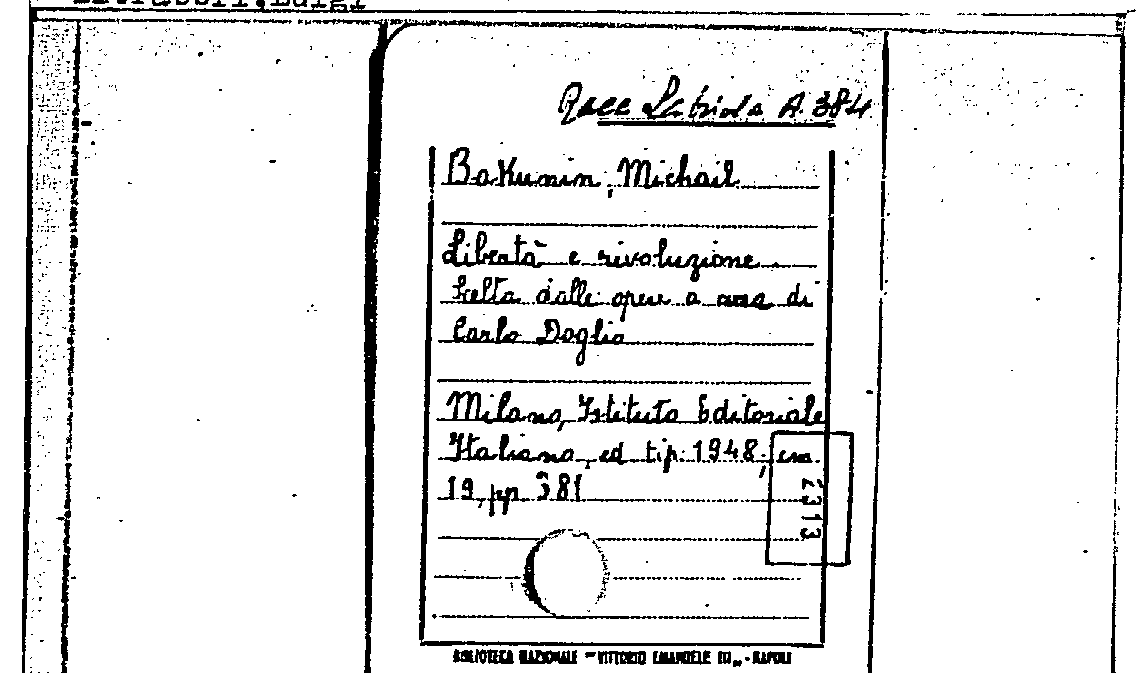 Race Labriola A 384
Bakunin, Michail
Libertà e rivoluzione.
Scelta dalle opere a cura di
Carlo Doglio
Milano, Istituto Editoriale
Italiano, ed tip. 1948, cm.
19, pp. 381
2313
BIBLIOTECA NAZIONALE "VITTORIO EMANUELE III" - NAPOLI